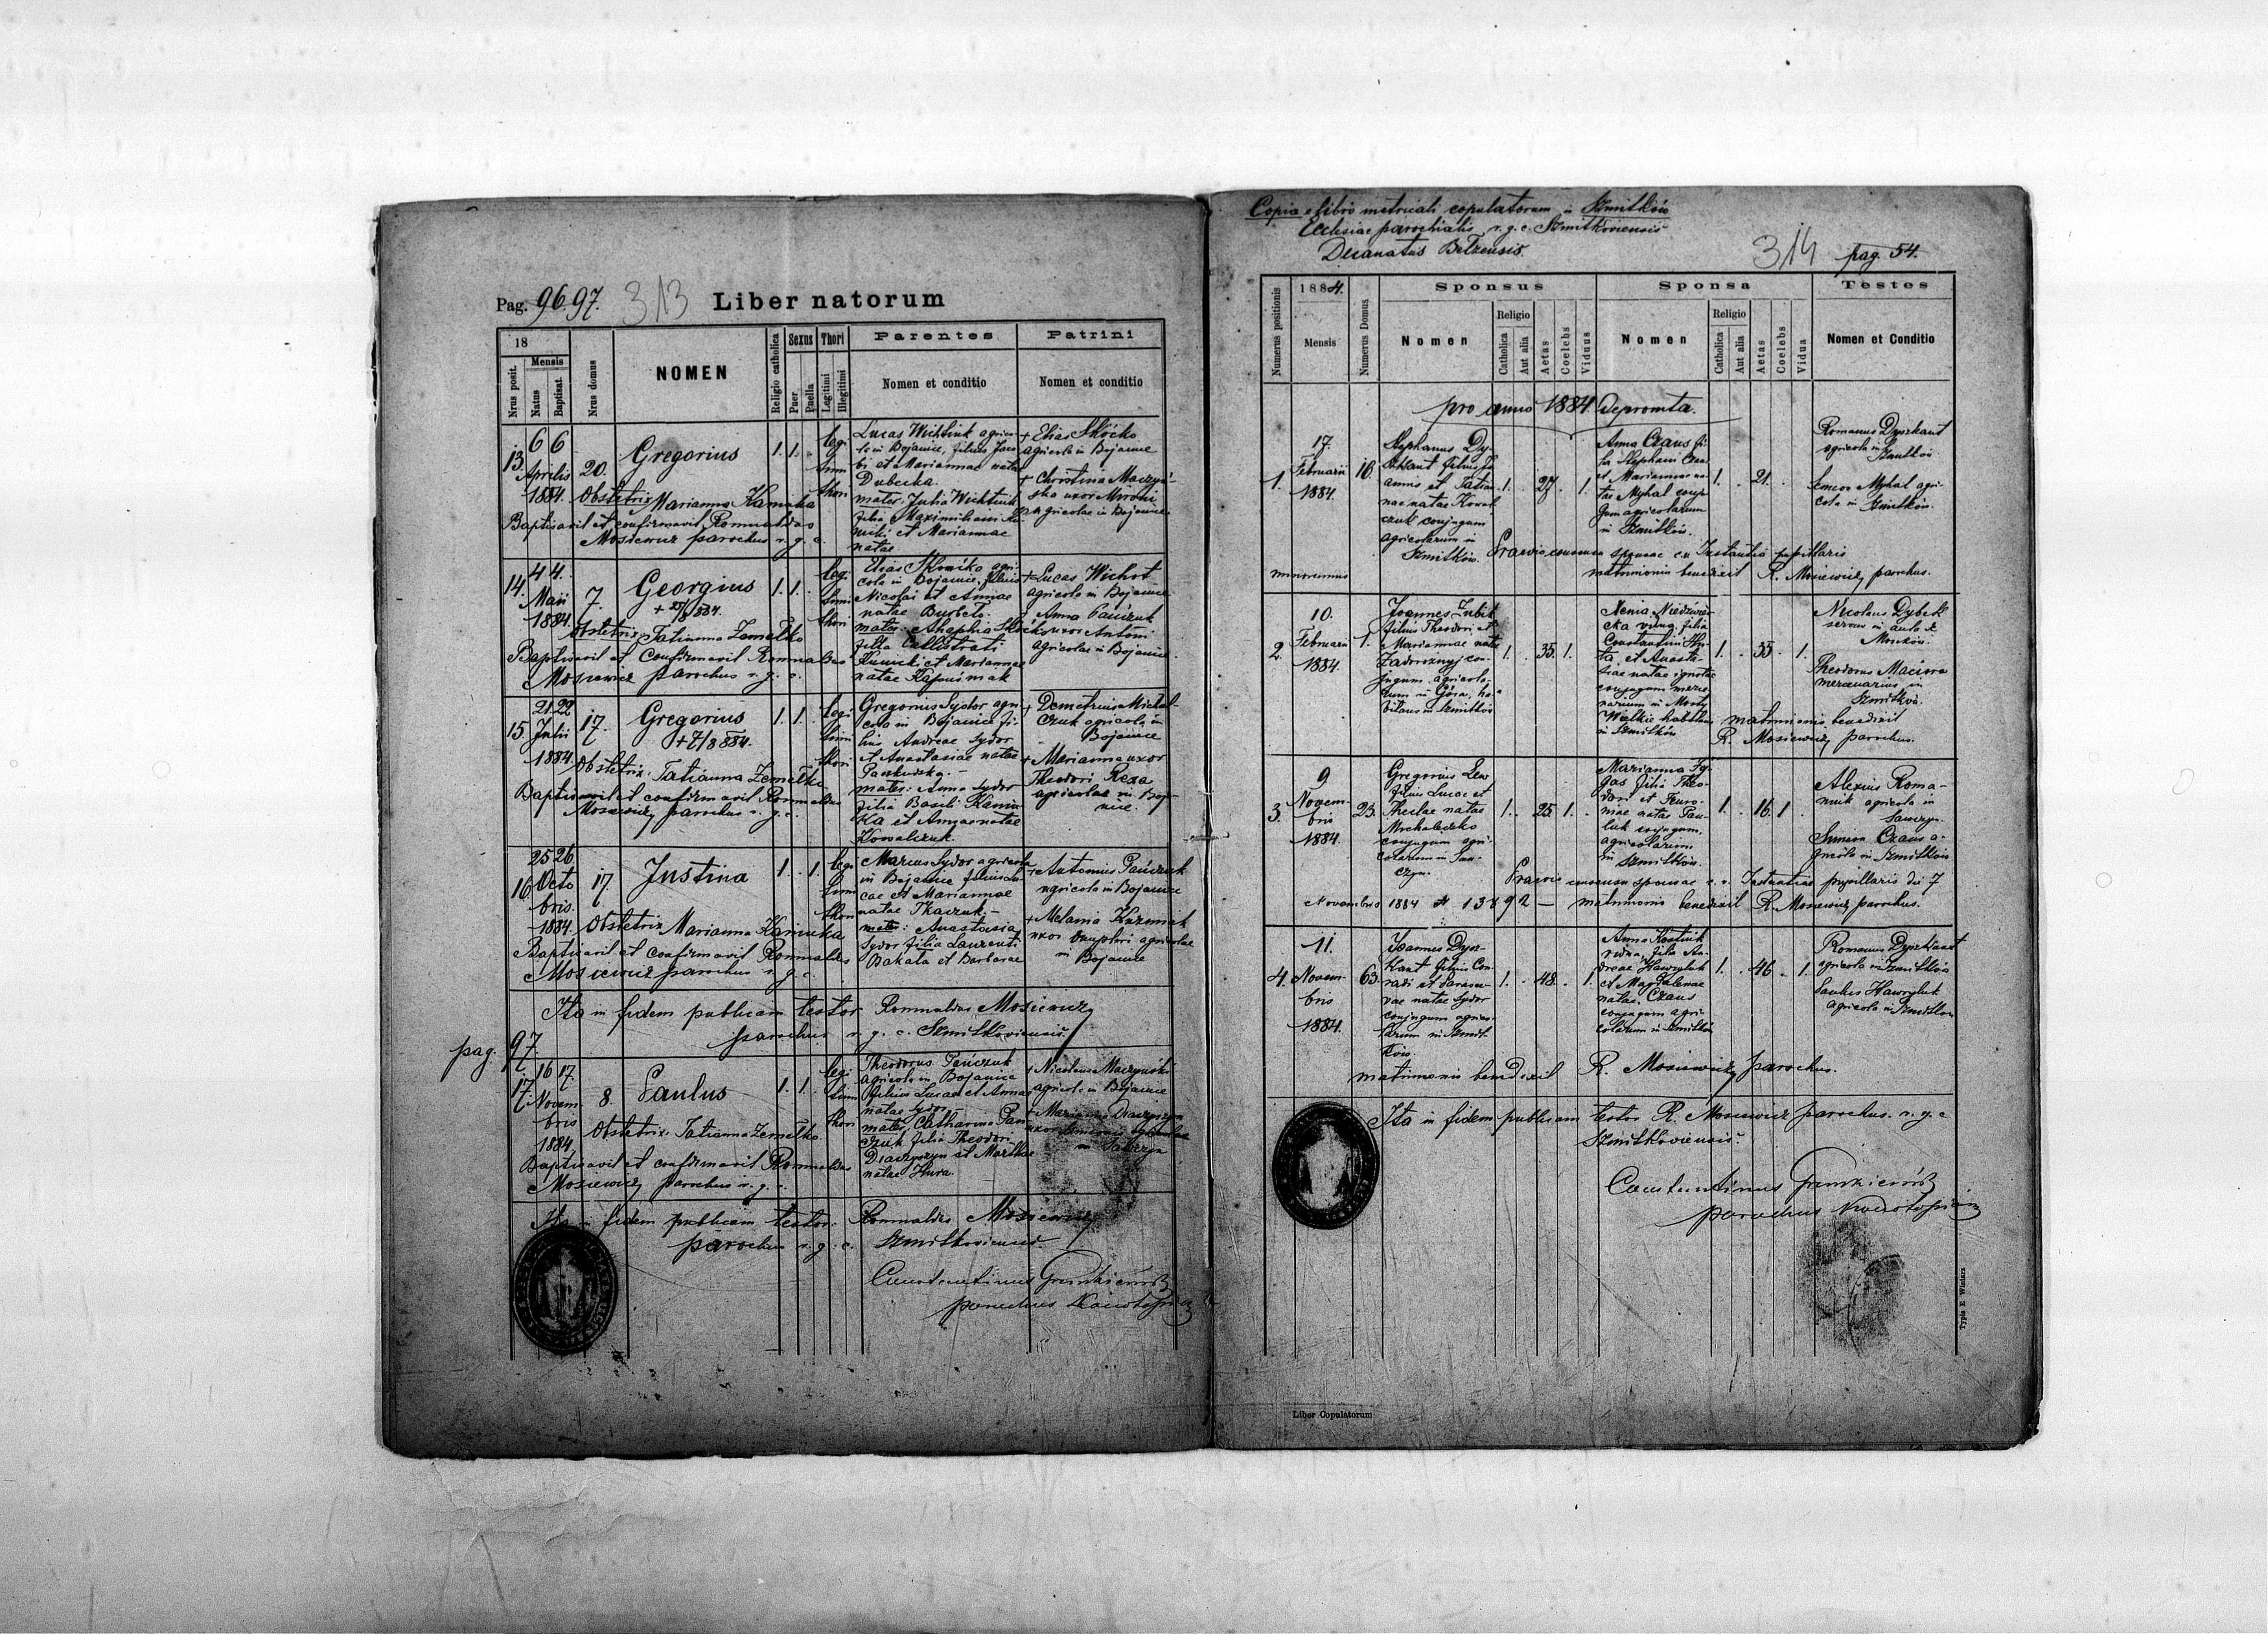 Pag. 96.97. 313 Liber natorum
18
Mensis
Nrus posit.
Natus
Baptisat.
Nrus domus
NOMEN
Religio catholica
Sexus
Puer
Puella
Thori
Legitimi
Illegitimi
Parentes
Nomen et conditio
Patrini
Nomen et conditio
13.
6 6
Aprilis
1884.
20.
Gregorius
1. 1.
legi
timi
thori
Obstetrix Marianna Kamuka
Baptisavit et confirmavit Romualdus
Mosiewicz parochus r. g. c.
Lucas Wichtiuk agrico-
la in Bojanice, filius Jaco
bi et Mariannae natae
Dubecka.
mater: Julia Wichtiuk
filia Maximiliani
et Mariannae
natae
+ Elias Skócko
agricola in Bojanice
+ Christina Maczyń-
ska uxor Mironi
agricolae in Bojanice
14.
4 4.
Maii
1884.
7.
Georgius
1. 1.
legi
timi
thori
Obstetrix Tatianna Zemełko
Baptisavit et confirmavit Romualdus
Mosiewicz parochus r. g. c.
Elias
cola in Bojanice, filius
Nicolai et Annae
natae Burbela.
mater: Ahaphia
filia Callistrati
Kunicki et Mariannae
natae Kapuśniak
+ Lucas Wichot
agricola in Bojanice
+ Anna Pańczuk
uxor Antoni
agricolae in Bojanice.
15.
21 22
Julii
1884.
17.
Gregorius
+ 7/8 884.
1. 1.
legi
timi
thori
Obstetrix: Tatianna Zemełko
Baptisavit et confirmavit Romualdus
Mosiewicz parochus r. g. c.
Gregorius Sydor agri
cola in Bojanice fi-
lius Andreae Sydor
et Anastasiae natae
mater: Anna Sydor
filia Basili Kamu
ka et Annae natae
Kowalczuk.
+ Demetrius Michal-
czuk agricola in
Bojanice
+ Marianna uxor
Theodori Reza
agricolae in Boja-
nice.
16.
25 26.
Octo
bris.
1884.
17
Justina
1. 1.
legi
timi
thori
Obstetrix Marianna Kamuka
Baptisavit et confirmavit Romualdus
Mosiewicz parochus r. g. c.
Marcus Sydor agricola
in Bojanice filius Lu
cae et Mariannae
natae Tkaczuk.-
mater: Anastasia
Sydor filia Laurenti
Bakala et Barbarae
+ Antonius Pańczuk
agricola in Bojanice
+ Melania Kuzmiak
uxor Onuphri agricolae
in Bojanice
Ita in fidem publicam testor Romualdus Mosiewicz
parochus r. g. c. Szmitkoviensis
pag. 97.
17.
16 17.
Novem
bris
1884.
8.
Paulus
1. 1.
legi
timi
thori
Obstetrix: Tatianna Zemełko
Baptisavit et confirmavit Romualdus
Mosiewicz parochus r. g. c.
Theodorus Pańczuk
agricola in Bojanice
filius Lucae et Annae
natae Sydor
mater: Catharina Pan
czuk filia Theodori
et Marthae
natae Hura.
+ Nicolaus Maczyński
agricola in Bojanice
+ Marianna
uxor
in Sawczyn
Ita in fidem publicam testor: Romualdus Mosiewicz
parochus r. g. c. Szmitkoviensis.
Constantinus
parochus
Copia e libro metricali copulatorum in Szmitków
Ecclesiae parochialis r. g. c. Szmitkoviensis
Decanatus Belzensis.
314 pag. 54.
Numerus positionis
1884.
Mensis
Numerus Domus
Sponsus
Nomen
Religio
Catholica
Aut alia
Aetas
Coelebs
Viduus
Sponsa
Nomen
Religio
Catholica
Aut alia
Aetas
Coelebs
Vidua
Testes
Nomen et Conditio
pro anno 1884 depromta.
1.
17.
Februarii
1884.
16.
Stephanus Dy-
szkant filius Jo
annis et Tatian
nae natae Kowal
czuk conjugum
agricolarum in
Szmitków.
1. 27. 1.
Anna Czaus fi-
lia Stephani Czau
et Mariannae na-
tae Myhal conju-
gum agricolarum
in Szmitków.
1. 21.
Romanus Dyszkant
agricola in
Szmitków
Simeon Myhal agri-
cola in Szmitków.
Praevio consensu sponsae ex Instantia pupillaris
minorennis matrimonio benedixit R. Mosiewicz parochus.
2.
10.
Februarii
1884.
1.
Joannes Zubik
filius Theodori et
Mariannae natae
Zadorożnyj con-
jugum agricola-
rum in Góra, ha-
bitans in Szmitków
1. 35. 1.
Xenia Niedźwie-
cka vidua, filia
Constantini
et Anasta-
siae natae ignotae
conjugum merce
nariorum in Mosty
Wielkie habitans
in Szmitków
1. 35. 1.
Nicolaus Dybek
servus in aula
Theodorus Maciora
mercenarius in
Szmitków.
matrimonio benedixit
R. Mosiewicz parochus.
3.
9
Novem-
bris
1884.
23.
Gregorius Lew
filius Lucae et
Theclae natae
Michaleczko
conjugum agri-
colarum in Saw-
czyn.
1. 25. 1.
Marianna
filia Theo-
dori et Fewro-
niae natae Paw-
luk conjugum
agricolarum
in Szmitków.
1. 16. 1
Alexius Roma-
niuk agricola in
Sawczyn
Simeon Czaus a-
gricola in Szmitków
Praevio consensu sponsae Instantiae pupillaris de 7
Novembris 1884 N 13792 - matrimonio benedixit R. Mosiewicz parochus.
4.
11.
Novem-
bris
1884.
63.
Joannes Dysz-
kant filius Con-
radi et Parasce-
vae natae Sydor
conjugum agrico-
larum in Szmit-
ków.
1. 48. 1.
Anna Kostiuk
vidua, filia An-
dreae Hawryluk
et Magdalenae
natae Czaus
conjugum agri-
colarum in Szmitków
1. 46. 1.
Romanus Dyszkant
agricola in Szmitków
Paulus Hawryluk
agricola in Szmitków
matrimonio benedixit R. Mosiewicz parochus.
Ita in fidem publicam testor R. Mosiewicz parochus. r. g. c
Szmitkoviensis.
Constantinus
parochus
Liber Copulatorum
Typis E Winiarz